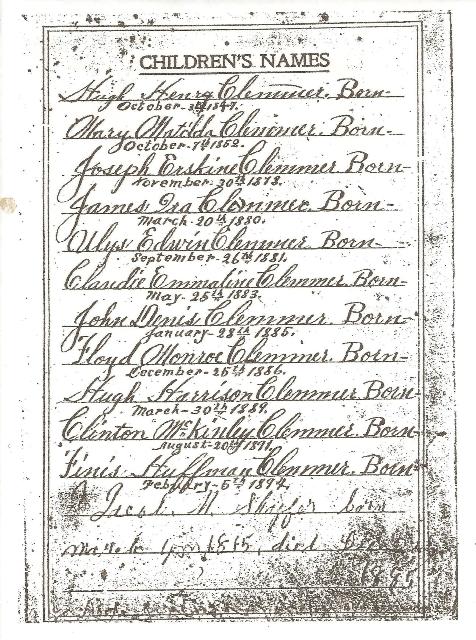 CHILDREN'S NAMES
Hugh Henry Clemmer. Born-
October- 3rd 1847.
Mary Matilda Clemmer. Born-
October-7th 1852.
Joseph Erskine Clemmer Born-
November-30th 1878.
James Ira Clemmer. Born-
March-20th 1880.
Ulys Edwin Clemmer. Born-
September-26th 1881.
Claudie Emmaline Clemmer. Born-
May-25th 1883.
John Denis Clemmer. Born-
January-28th 1885.
Floyd Monroe Clemmer. Born-
December-25th 1886.
Hugh Harrison Clemmer Born-
March-30th 1889.
Clinton McKinley Clemmer. Born-
August-20th 1891.
Finis Huffman Clemmer. Born-
February-5th 1894.
Jacob M born
March 1815, died